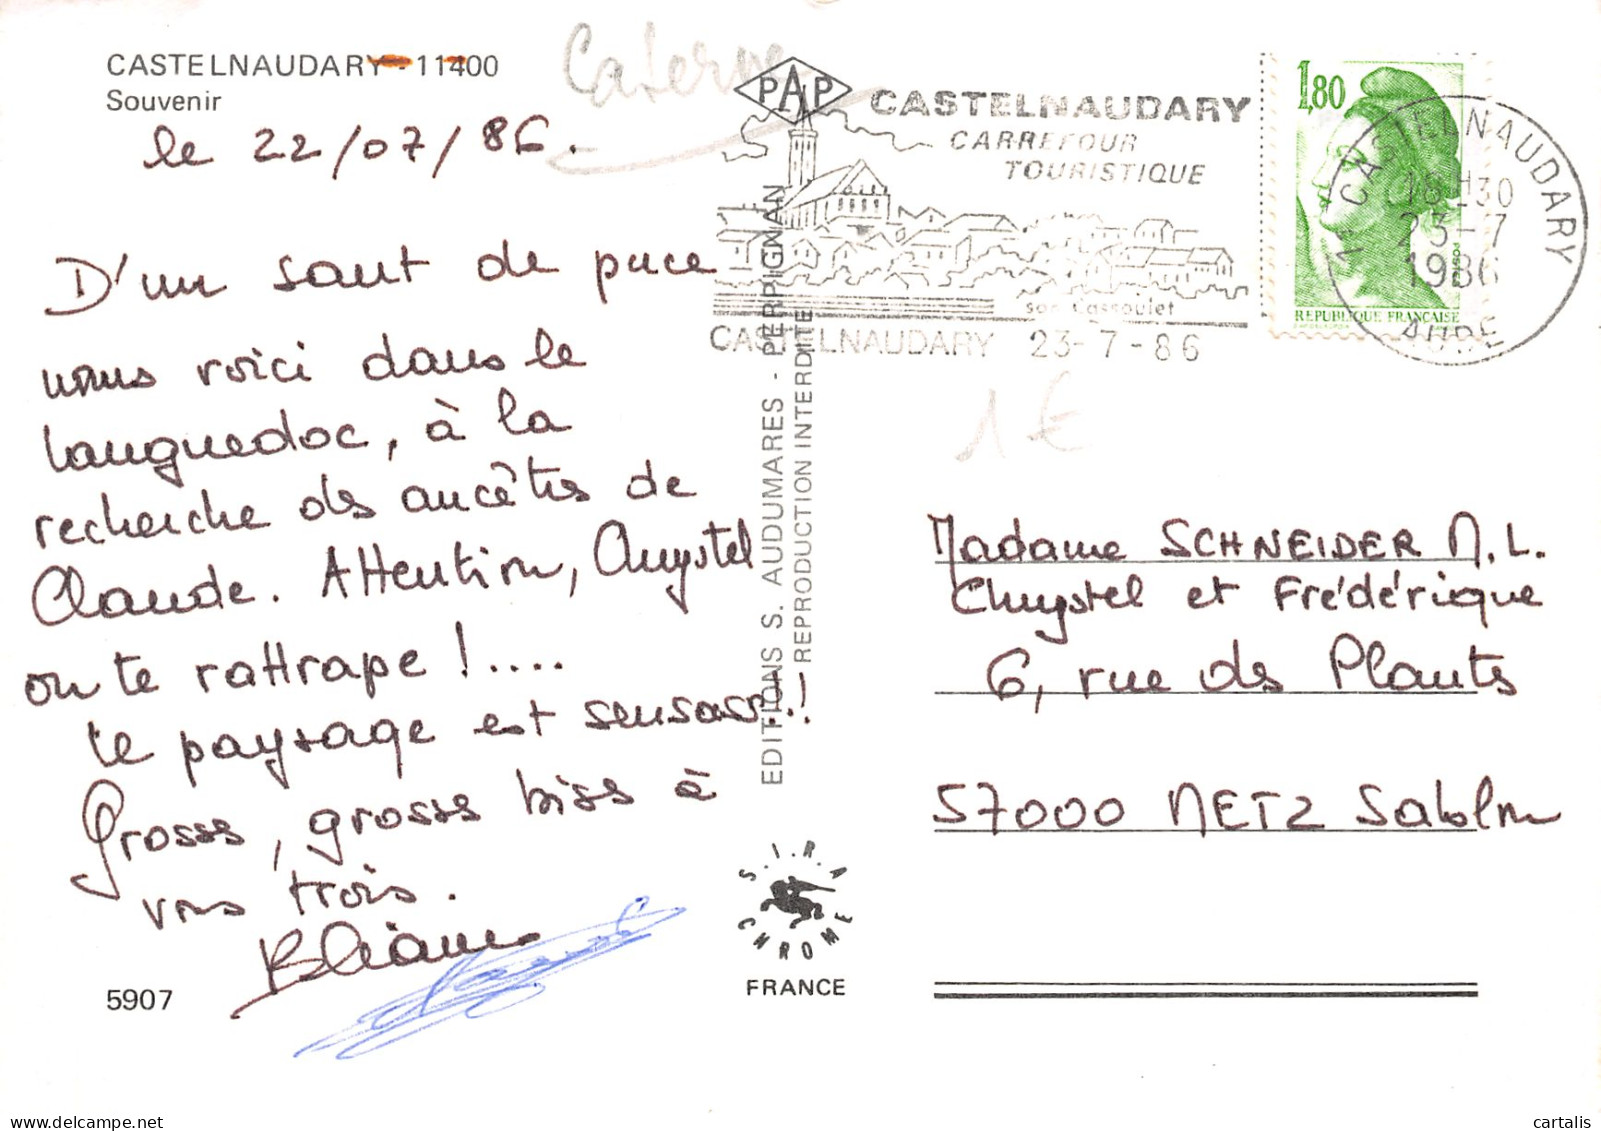 CASTELNAUDARY - 11400
Souvenir
le 22/07/86.
D'un saut de puce
nous voici dans le
Languedoc, à la
recherche des ancêtres de
Claude. Attention, Chrystel
on te rattrape !....
Le paysage est sensass..!
Grosses, grosses bises à
vous trois.
5907
PAP
EDITIONS S. AUDUMARES - PERPIGNAN
REPRODUCTION INTERDITE
S.I.R.A
CHROME
FRANCE
CASTELNAUDARY
CARREFOUR
TOURISTIQUE
son Cassoulet
CASTELNAUDARY 23-7-86
1,80
REPUBLIQUE FRANÇAISE
11 CASTELNAUDARY
16H30
23-7
1986
AUDE
1€
Madame SCHNEIDER M.L.
Chrystel et Frédérique
6, rue des Plantes
57000 METZ Sablon
cartalis